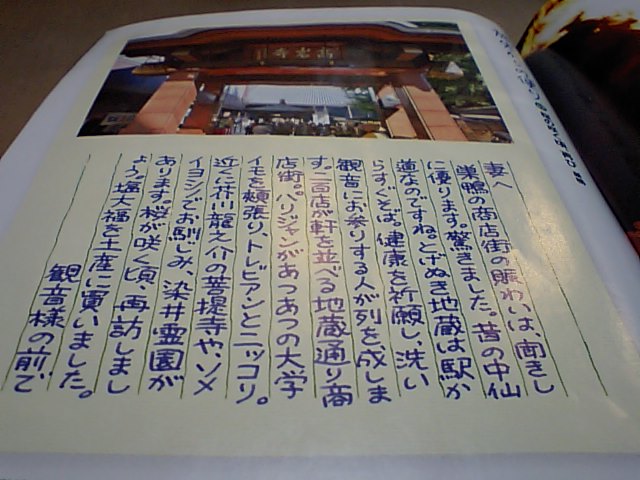 高岩寺
妻へ
巣鴨の商店街の賑わいは、聞きし
に優ります。驚きました。昔の中仙
道なのですね。とげぬき地蔵は駅か
らすぐそば、健康を祈願し、洗い
観音にお参りする人が列を成しま
す。二百店が軒を並べる地蔵通り商
店街。パリジャンがあつあつの大学
イモを頬張り、トレビアンとニッコリ。
近く、芥川龍之介の菩提寺や、ソメ
イヨシノでお馴じみ、染井霊園が
あります。桜が咲く頃、再訪しまし
ょう。塩大福を土産に買いました。
観音様の前で